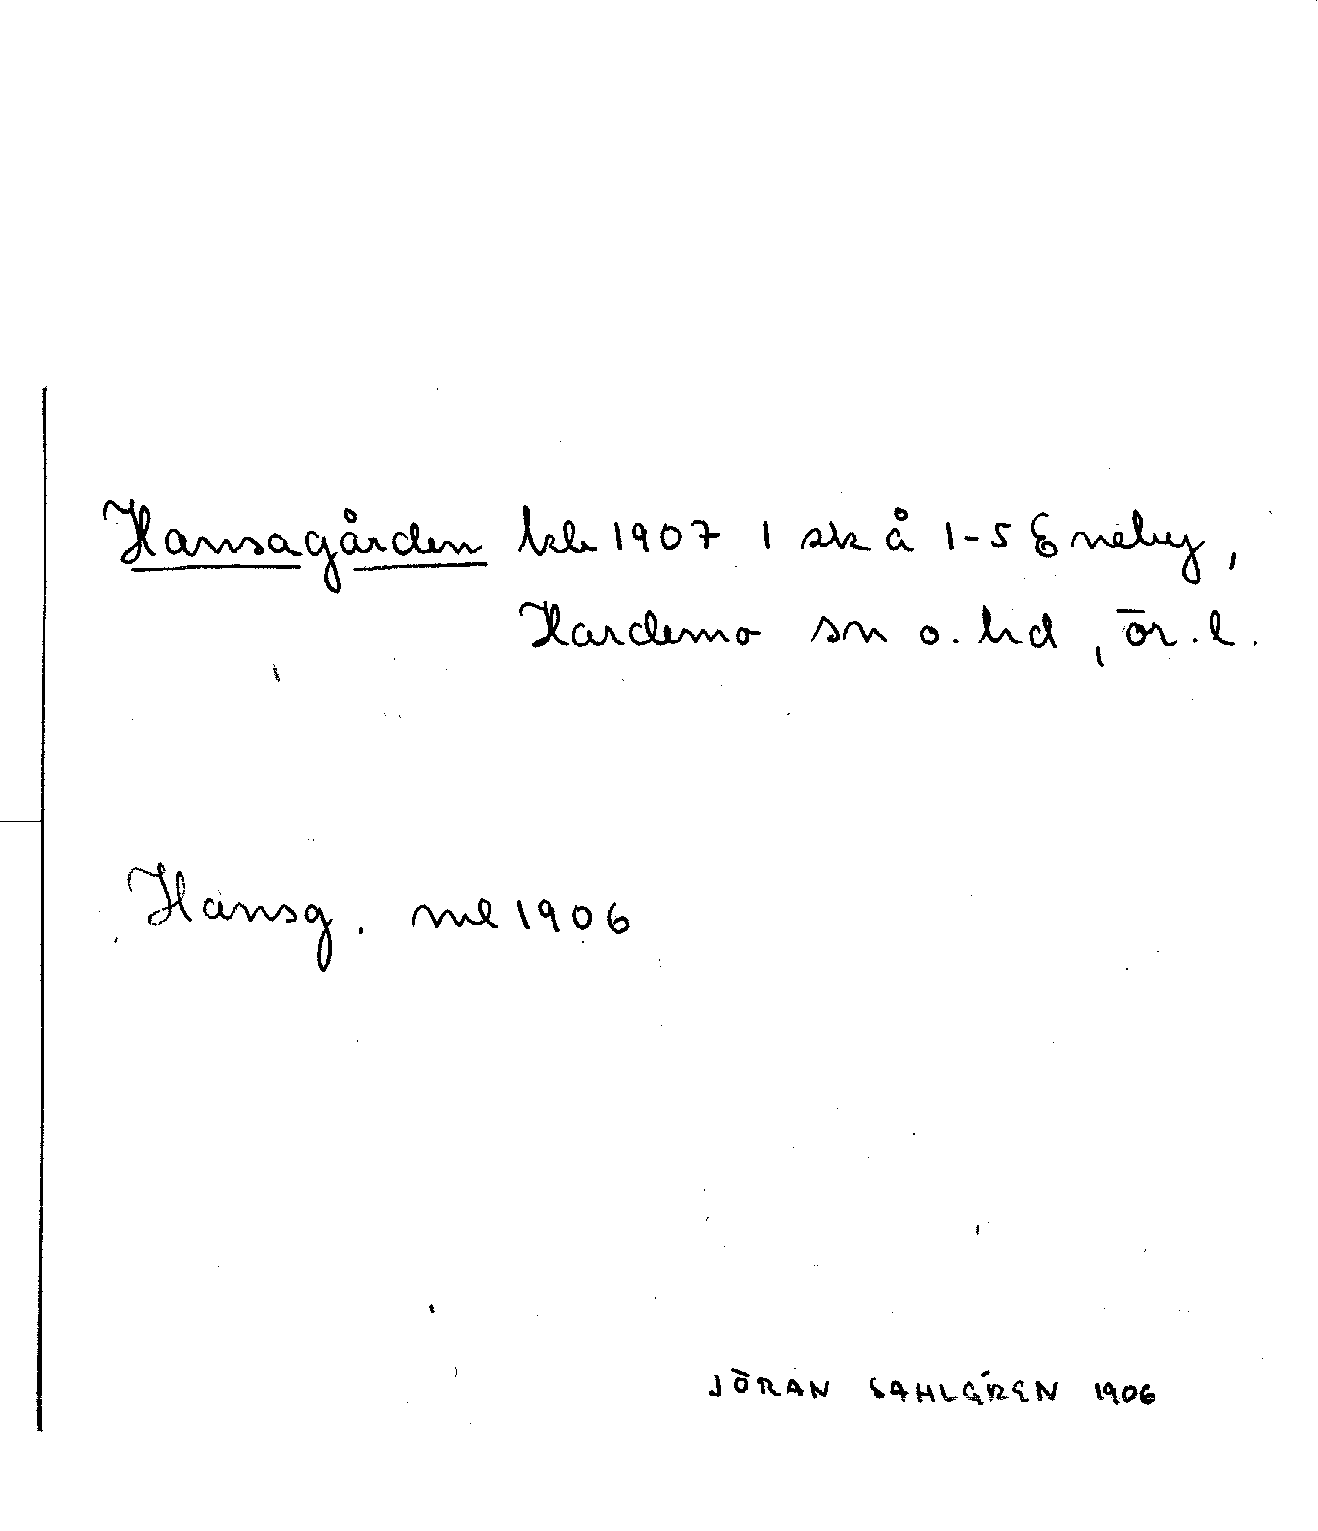 Hansagården kb 1907 1 sk å 1-5 Eneby,
Hardemo sn o. hd, ör. l.
Hansg. ml 1906
JÖRAN SAHLGREN 1906